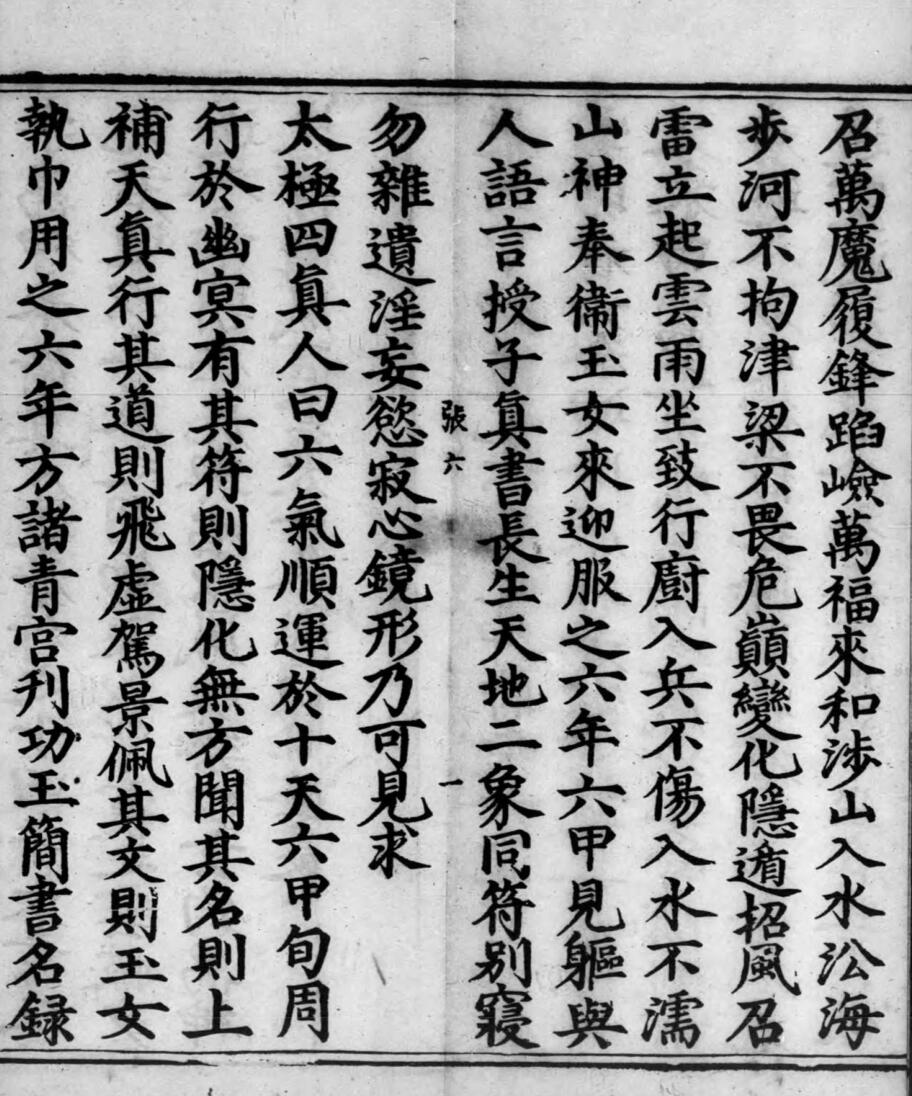 召萬魔履鋒蹈嶮萬福來和涉山入水㳂海
步河不拘津梁不畏危巔變化隱遁招風召
雷立起雲雨坐致行廚入兵不傷入水不濡
山神奉衞玉女來迎服之六年六甲見軀與
人語言授子真書長生天地二象同符別寢
張六
一
勿雜遺淫妄慾寂心鏡形乃可見求
太極四真人曰六氣順運於十天六甲旬周
行於幽冥有其符則隱化無方聞其名則上
補天真行其道則飛虛駕景佩其文則玉女
執巾用之六年方諸青宮刋功玉簡書名録